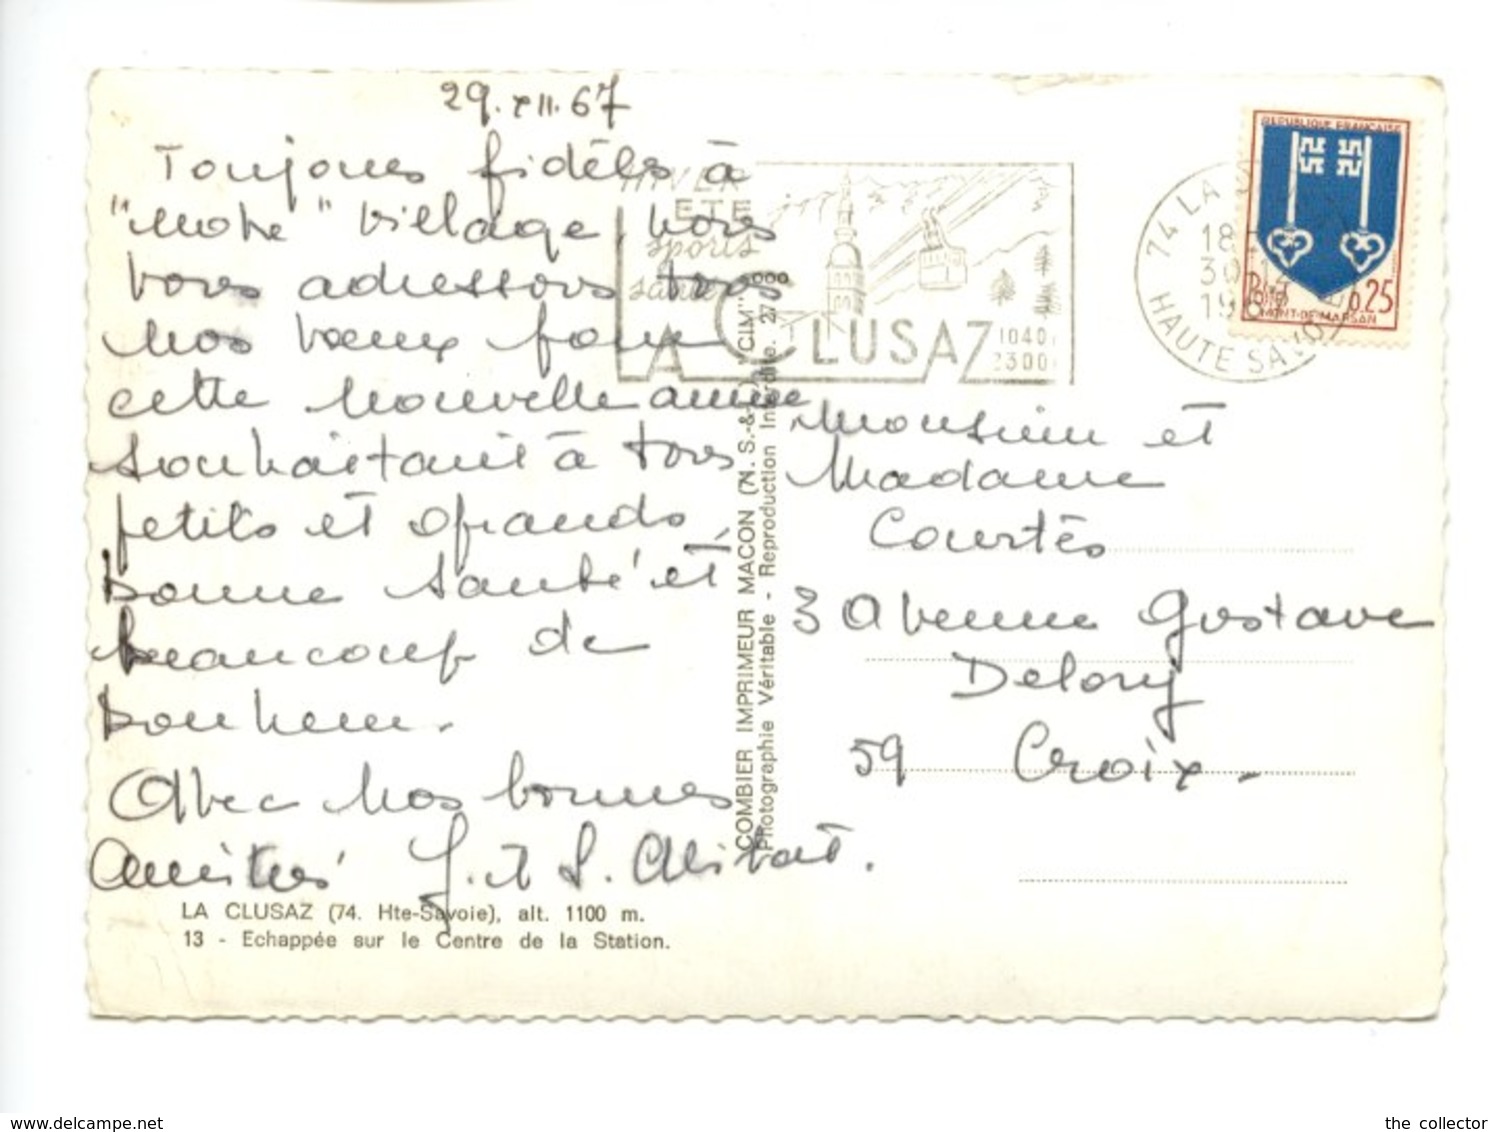 29.XII.67
Toujours fidèles à
"notre" village, nous
vous adressons tous
nos vœux pour
cette nouvelle année
souhaitant à tous
petits et grands,
bonne santé et
beaucoup de
bonheur.
Avec nos bonnes
amitiés J. et S.
LA CLUSAZ (74. Hte-Savoie), alt. 1100 m.
13 - Echappée sur le Centre de la Station.
COMBIER IMPRIMEUR MACON (N. S.-&-L.) "CIM"
Photographie Véritable - Reproduction Interdite.
HIVER
ETE
sports
LA CLUSAZ
1040
2300
74 LA
18
30-12
HAUTE SAVOIE
REPUBLIQUE FRANÇAISE
Postes 0,25
MONT-DE-MARSAN
Monsieur et
Madame
Courtès
3 Avenue Gustave
Delory
59 Croix -
www.delcampe.net
the collector